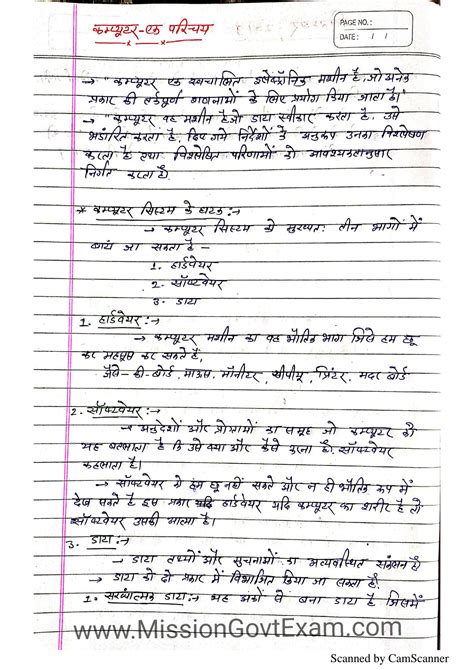 कम्प्यूटर - एक परिचय
PAGE NO.:
DATE: / /
→ "कम्प्यूटर एक स्वचालित इलेक्ट्रॉनिक मशीन है, जो अनेक
प्रकार की तर्कपूर्ण गणनाओं के लिए प्रयोग किया जाता है।"
→ "कम्प्यूटर वह मशीन है जो डाटा स्वीकार करता है, उसे
भंडारित करता है, दिए गये निर्देशों के अनुरूप उनका विश्लेषण
करता है तथा विश्लेषित परिणामों को आवश्यकतानुसार
निर्गत करता है।
* कम्प्यूटर सिस्टम के घटक :→
→ कम्प्यूटर सिस्टम को मुख्यतः तीन भागों में
बांटा जा सकता है -
1. हार्डवेयर
2. सॉफ्टवेयर
3. डाटा
1. हार्डवेयर :→
→ कम्प्यूटर मशीन का वह भौतिक भाग जिसे हम छू
कर महसूस कर सकते हैं,
जैसे - की-बोर्ड, माउस, मॉनीटर, सीपीयू, प्रिंटर, मदर बोर्ड
2. सॉफ्टवेयर :→
→ अनुदेशों और प्रोग्रामों का समूह जो कम्प्यूटर को
यह बतलाता है कि उसे क्या और कैसे करना है। सॉफ्टवेयर
कहलाता है।
→ सॉफ्टवेयर को हम छू नहीं सकते और न ही भौतिक रूप में
देख सकते हैं इस प्रकार यदि हार्डवेयर यदि कम्प्यूटर का शरीर है तो
सॉफ्टवेयर उसकी आत्मा है।
3. डाटा :→
→ डाटा तथ्यों और सूचनाओं का अव्यवस्थित संकलन है
→ डाटा को दो प्रकार में विभाजित किया जा सकता है.
1. संख्यात्मक डाटा :→ यह अंकों से बना डाटा है जिसमें
www.MissionGovtExam.com
Scanned by CamScanner